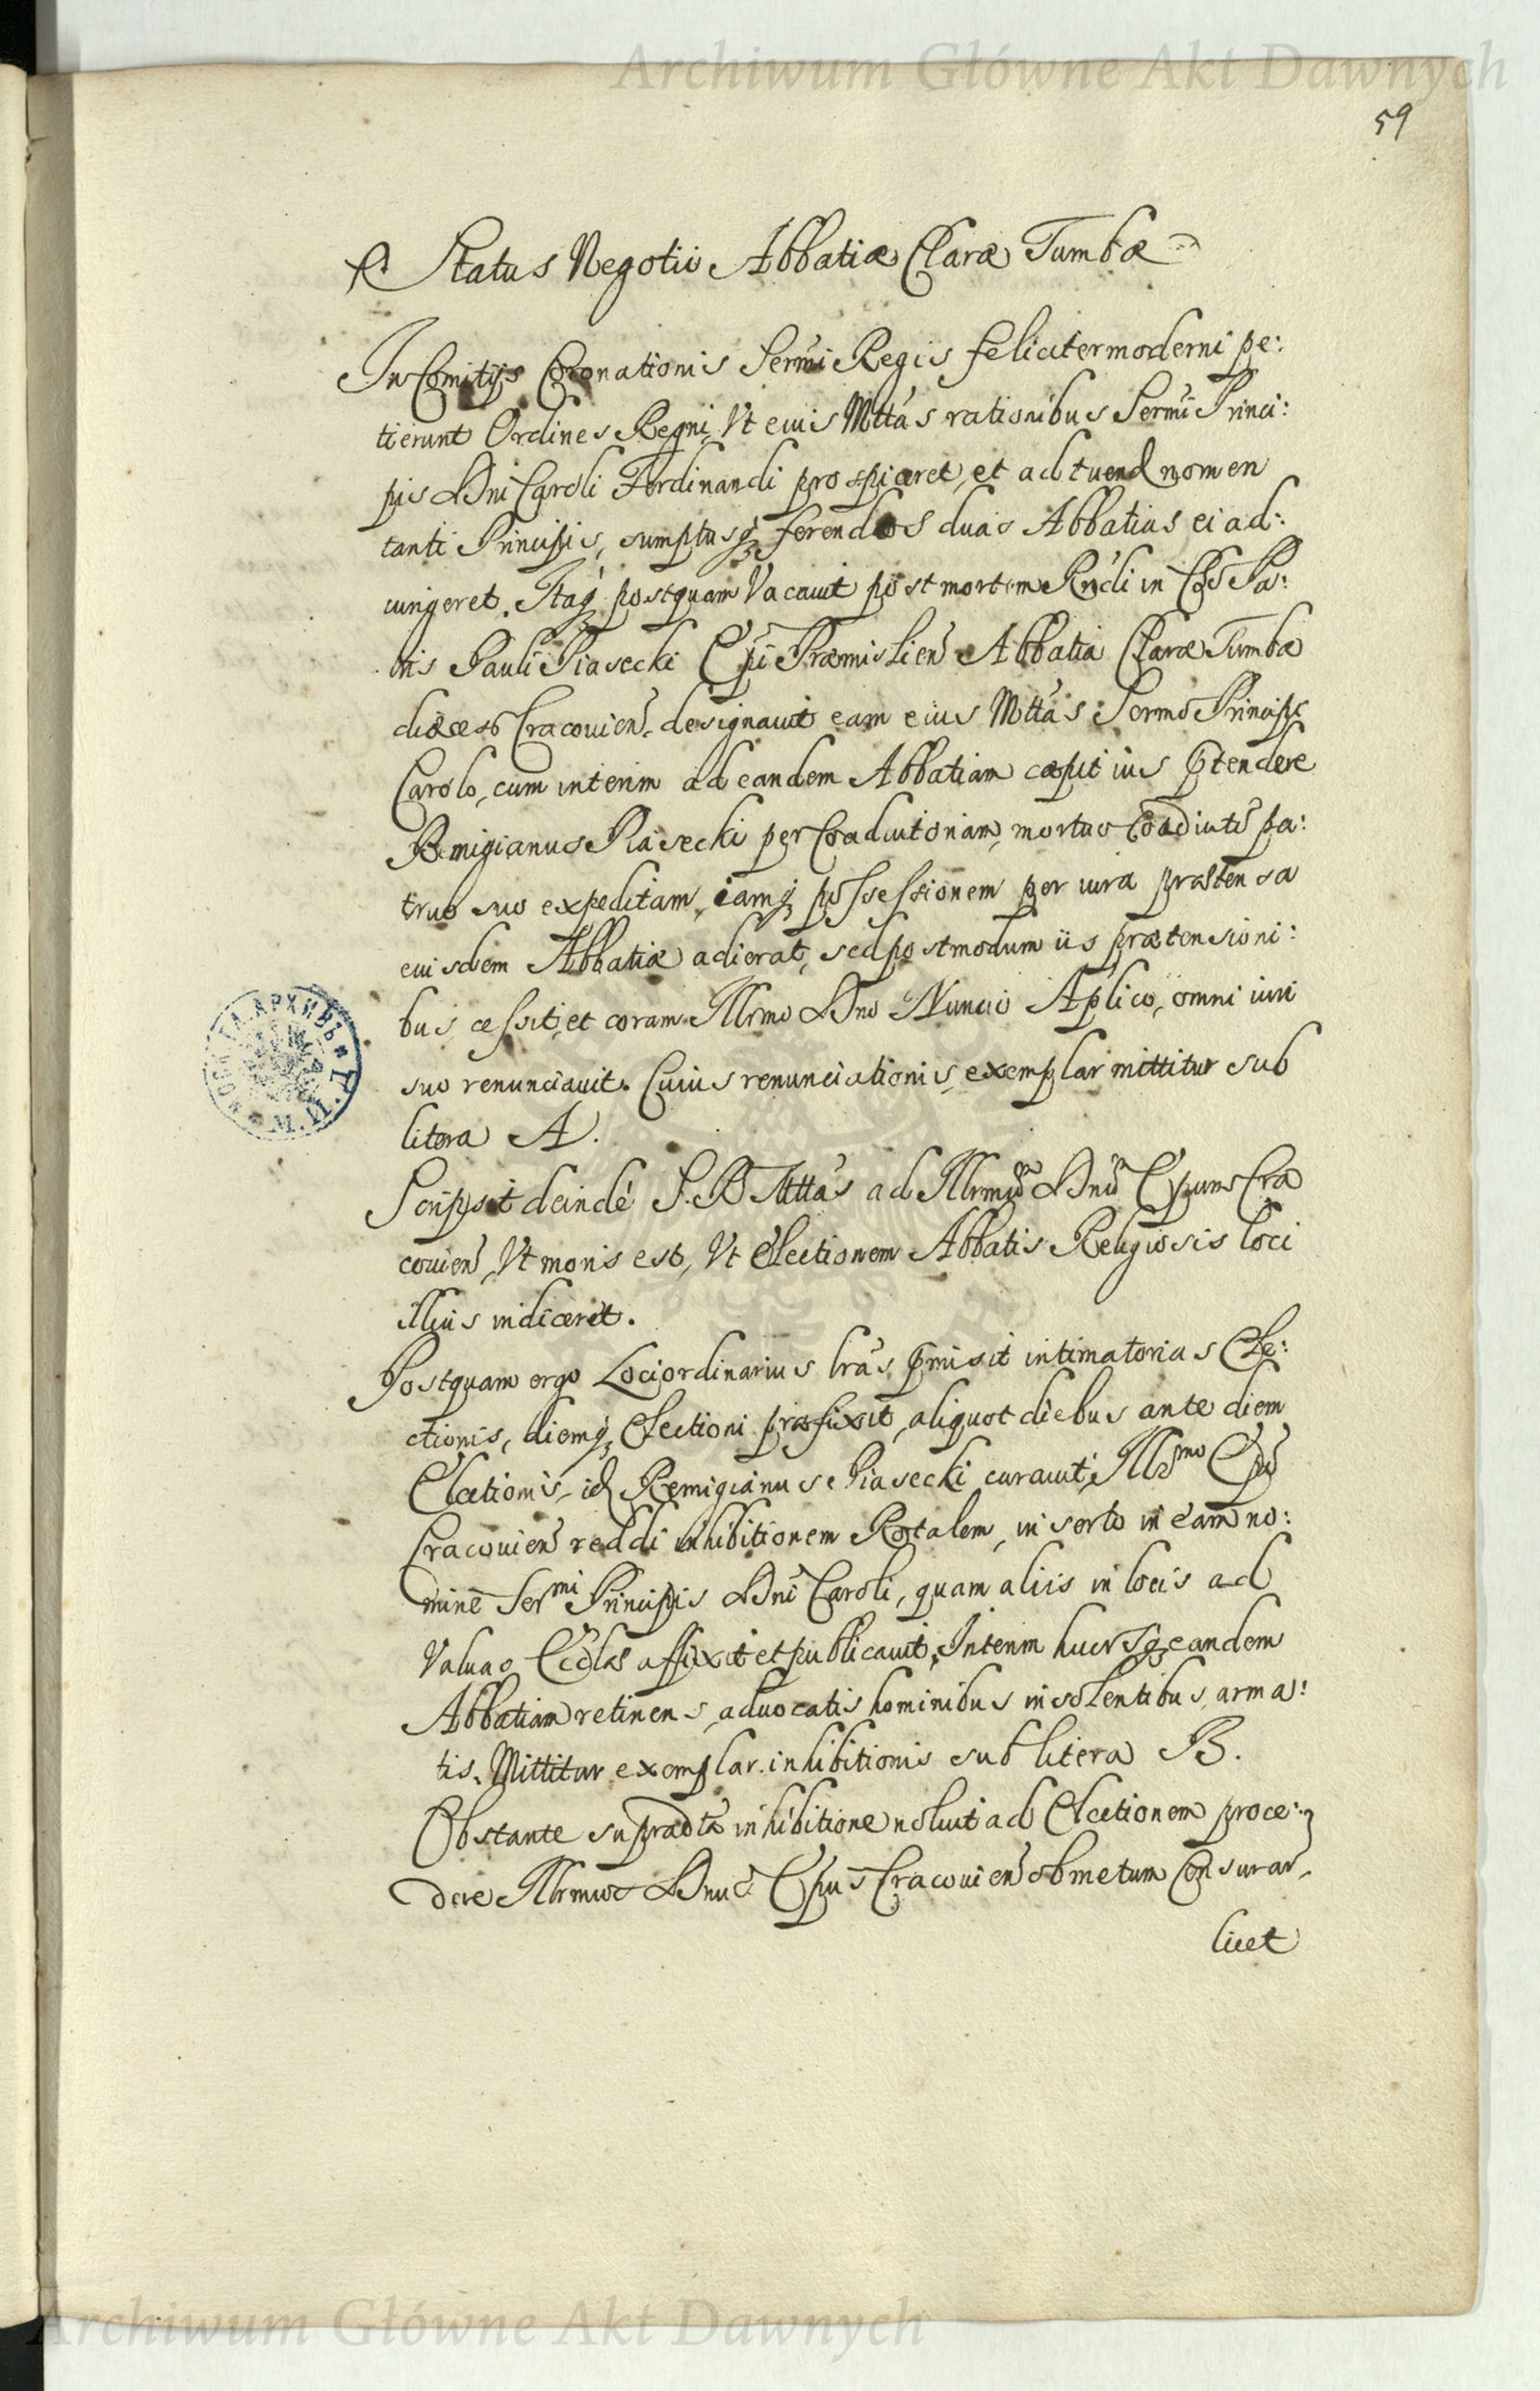 Archiwum Główne Akt Dawnych
59
Status Negotii Abbatiæ Claræ Tumbæ
In Comitijs Coronationis Sermi Regis feliciter moderni pe:
tierunt Ordines Regni, Vt eius Mttas rationibus Sermi Princi:
pis Dni Caroli Ferdinandi prospiceret, et ad tuend nomen
tanti Principis, sumptusq; ferendos duas Abbatias ei ad:
iungeret. Itaq; postquam Vacauit post mortem Rndi in Chro Pa:
tris Pauli Piasecki Epi Præmislien Abbatia Claræ Tumbæ
diæces Cracouien. designauit eam eius Mttas Sermo Principi
Carolo, cum interim ad eandem Abbatiam cæpit ius prtendere
Remigianus Piasecki per Coadiutoriam, mortuo Coadiuto pa:
truo suo expeditam, iamq; possessionem per iura prætensa
eiusdem Abbatiæ adierat, sed postmodum iis prætensioni:
bus cessit, et coram Illrmo Dno Nuncio Aplico, omni iuri
suo renunciauit. Cuius renunciationis exemplar mittitur sub
litera A.
Scripsit deindé S. R Mttas ad Illrmu Dnu Epum Cra
couien, Vt moris est, Vt Electionem Abbatis Religiosis loci
illius indiceret.
Postquam ergo Loci ordinarius lras prmisit intimatorias Ele:
ctionis, diemq; Electioni præfixit, aliquot diebus ante diem
Electionis, id Remigianus Piasecki curauit, Illrmo Epo
Cracouien reddi inhibitionem Rotalem, inserto in eam no:
mine Sermi Principis Dni Caroli, quam aliis in locis ad
Valuas Ecclas affixit et publicauit, Interim hucusq; eandem
Abbatiam retinens, aduocatis hominibus insolentibus arma:
tis. Mittitur exemplar inhibitionis sub litera B.
Obstante supradta inhibitione noluit ad Electionem proce:
dere Illrmus Dnus Epus Cracouien ob metum Censurar,
licet
Archiwum Główne Akt Dawnych